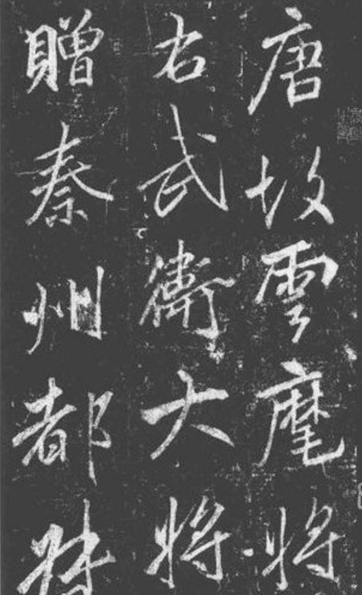 唐故雲麾將
右武衛大將
贈秦州都